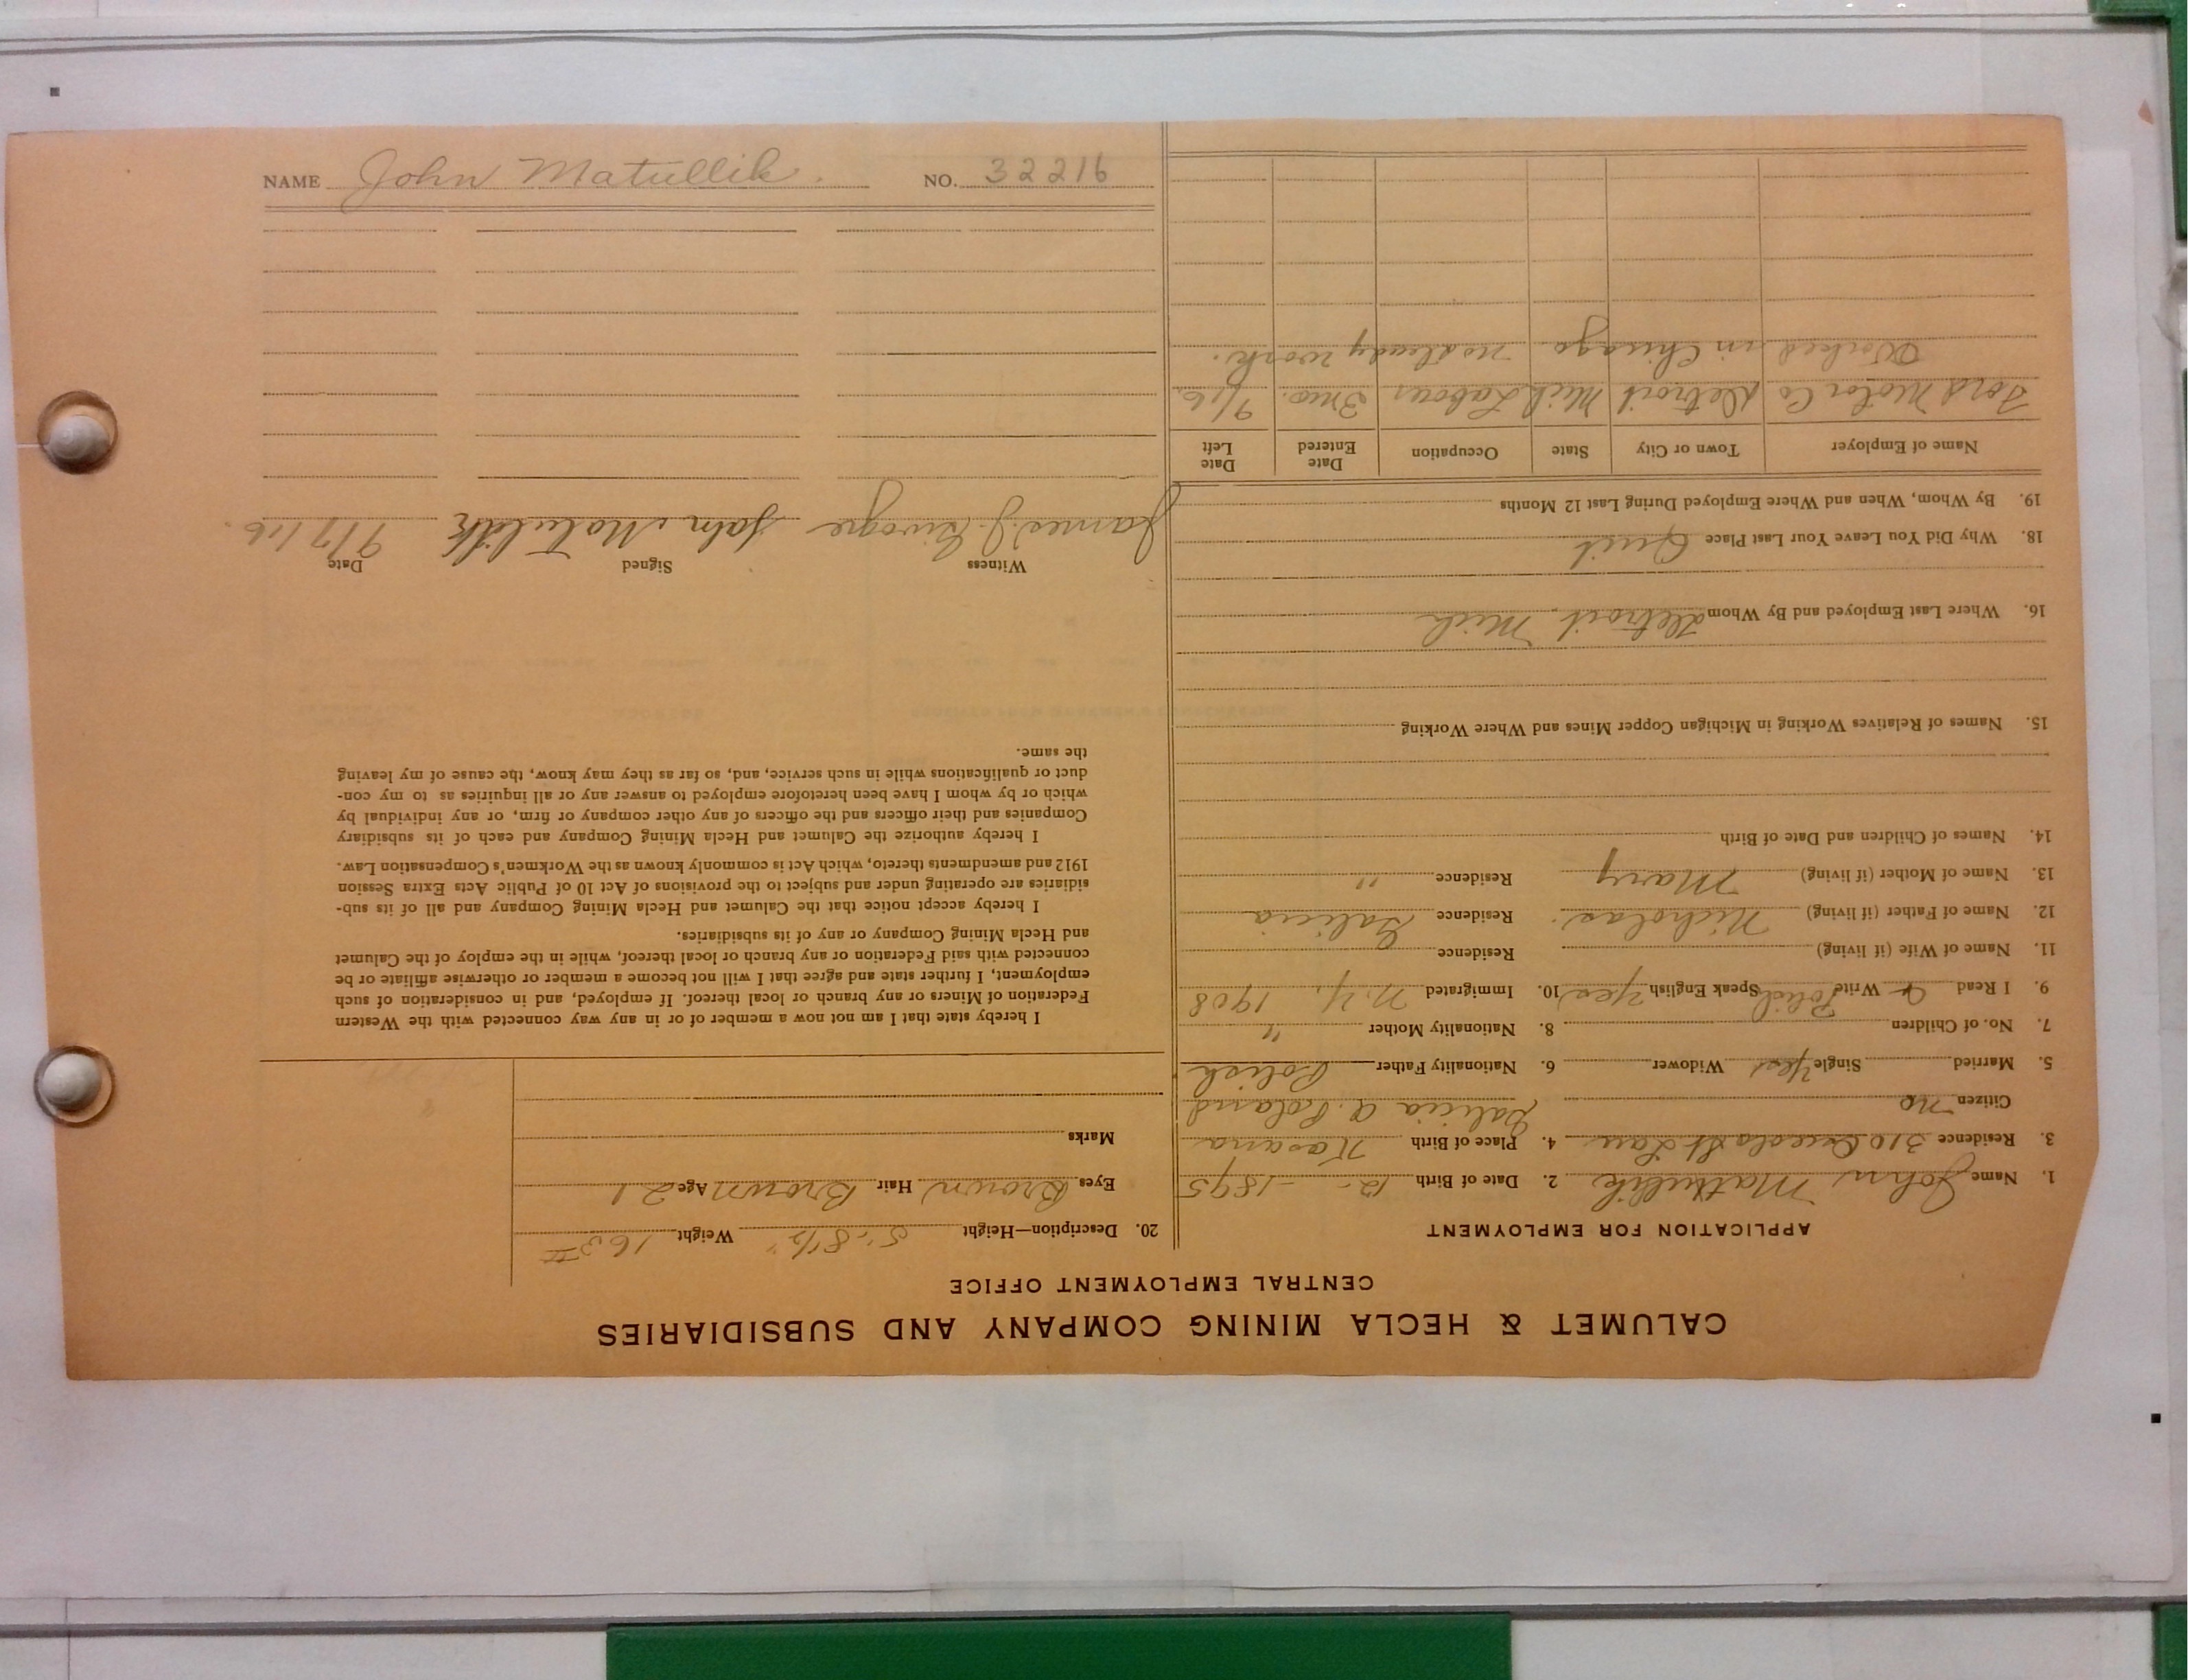 CALUMET & HECLA MINING COMPANY AND SUBSIDIARIES
CENTRAL EMPLOYMENT OFFICE
APPLICATION FOR EMPLOYMENT
1. Name John Mathellik 2. Date of Birth 12 - 1895
3. Residence 310 Osceola St Lau 4. Place of Birth Kasana
Citizen no Galicia A. Poland
5. Married Single Yes Widower 6. Nationality Father Polish
7. No. of Children 8. Nationality Mother "
9. I Read & Write Polish Speak English Yes 10. Immigrated N.Y. 1908
11. Name of Wife (if living) Residence
12. Name of Father (if living) Nicholas. Residence Galicia
13. Name of Mother (if living) Mary Residence "
14. Names of Children and Date of Birth
15. Names of Relatives Working in Michigan Copper Mines and Where Working
16. Where Last Employed and By Whom Detroit Mich
18. Why Did You Leave Your Last Place Quit
19. By Whom, When and Where Employed During Last 12 Months
Name of Employer Town or City State Occupation Date Entered Date Left
Ford Motor Co Detroit Mich Labour 3 mo. 9/16
Worked in Chicago no steady work.
20. Description—Height 5'-8½" Weight 163
Eyes Brown Hair Brown Age 21
Marks
I hereby state that I am not now a member of or in any way connected with the Western
Federation of Miners or any branch or local thereof. If employed, and in consideration of such
employment, I further state and agree that I will not become a member or otherwise affiliate or be
connected with said Federation or any branch or local thereof, while in the employ of the Calumet
and Hecla Mining Company or any of its subsidiaries.
I hereby accept notice that the Calumet and Hecla Mining Company and all of its sub-
sidiaries are operating under and subject to the provisions of Act 10 of Public Acts Extra Session
1912 and amendments thereto, which Act is commonly known as the Workmen's Compensation Law.
I hereby authorize the Calumet and Hecla Mining Company and each of its subsidiary
Companies and their officers and the officers of any other company or firm, or any individual by
which or by whom I have been heretofore employed to answer any or all inquiries as to my con-
duct or qualifications while in such service, and, so far as they may know, the cause of my leaving
the same.
Witness Signed Date
James J. John Matullik 9/7/16.
NAME John Matullik. NO. 32216